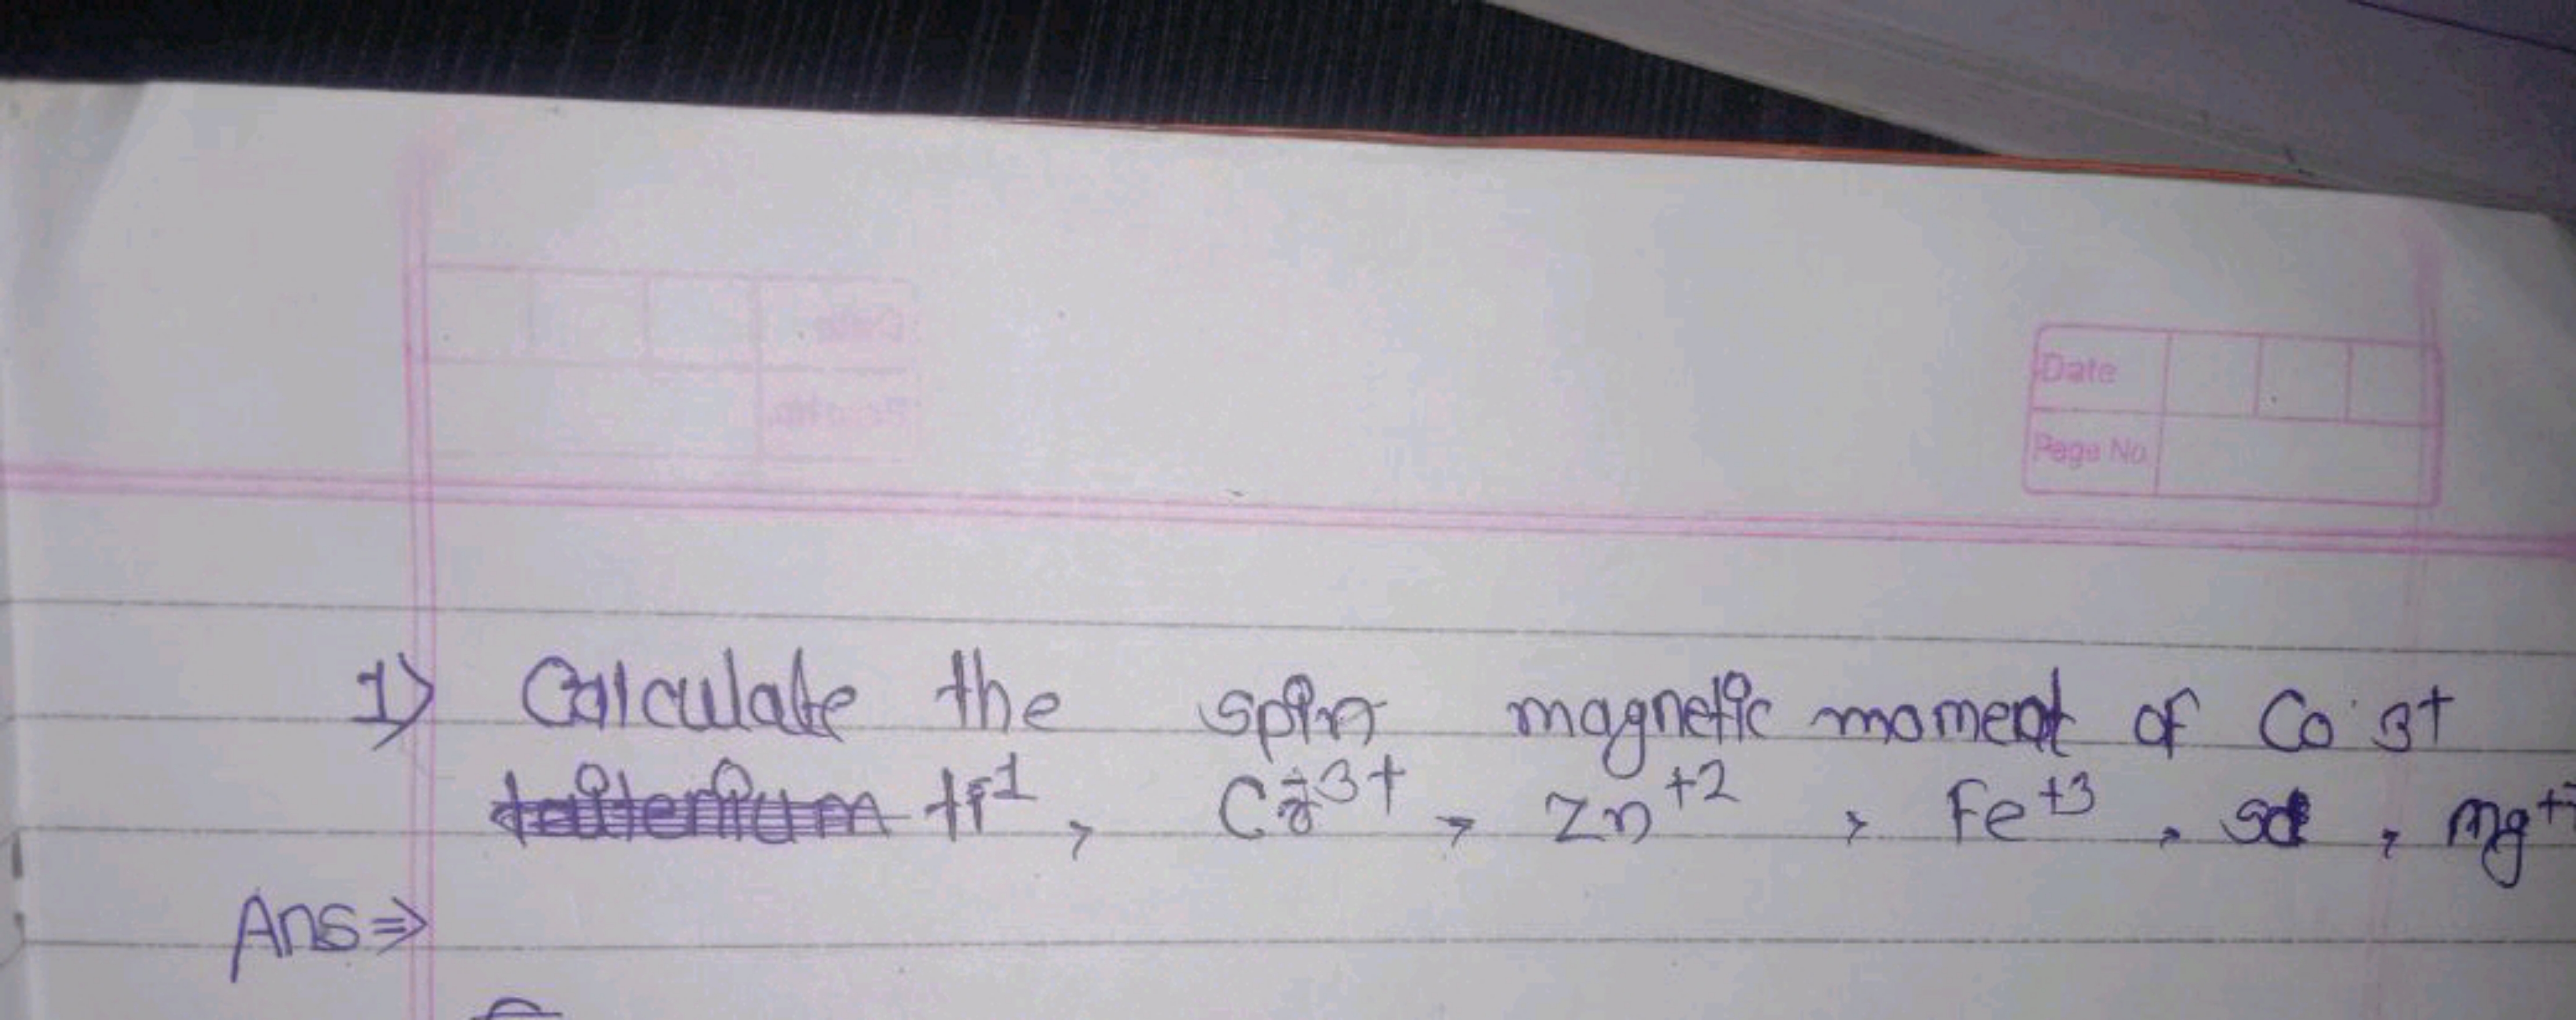 Date
Page No.
1) Calculate the spin magnetic moment of Co 3+
ti1, Cr3+, Zn+2, Fe+3, sc, mg+
Ans⇒